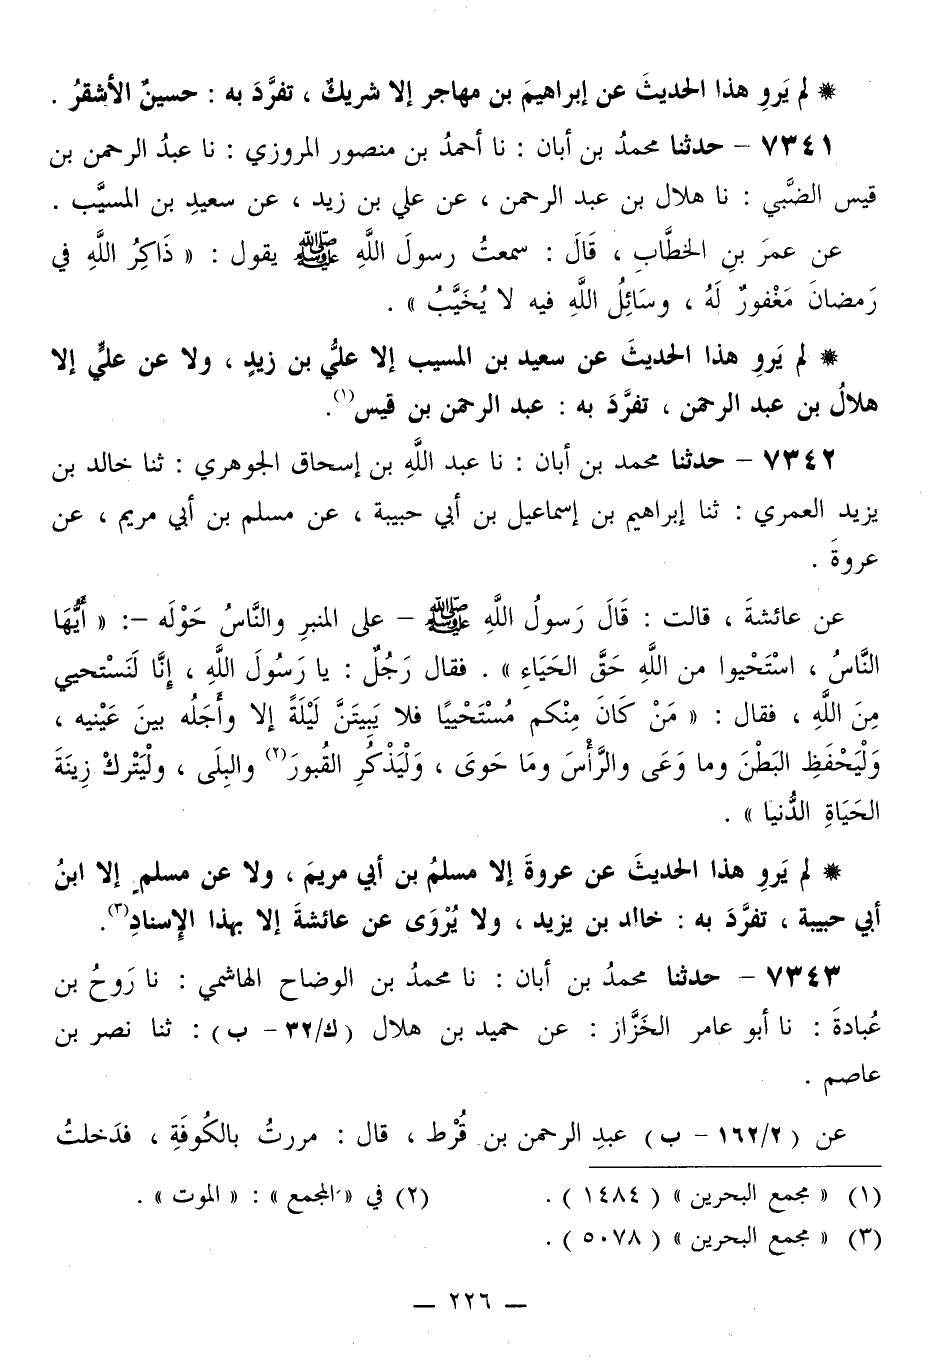 * لم يَروِ هذا الحديثَ عن إبراهيمَ بن مهاجر إلا شريكٌ ، تفرَّدَ به : حسينٌ الأشقرُ .
٧٣٤١ – حدثنا محمدُ بن أبان : نا أحمدُ بن منصور المروزي : نا عبدُ الرحمن بن
قيس الضَّبي : نا هلال بن عبد الرحمن ، عن علي بن زيد ، عن سعيدِ بن المسيَّب .
عن عمرَ بنِ الخطَّابِ ، قَالَ : سمعتُ رسولَ اللَّهِ ﷺ يقول : « ذَاكِرُ اللَّهِ في
رَمضانَ مَغْفورٌ لَهُ ، وسَائِلُ اللَّهِ فيه لا يُخَيَّبُ » .
* لم يَروِ هذا الحديثَ عن سعيد بن المسيب إلا عليُّ بن زيدٍ ، ولا عن عليٍّ إلا
هلالُ بن عبد الرحمن ، تفرَّدَ به : عبد الرحمن بن قيس(١).
٧٣٤٢ – حدثنا محمد بن أبان : نا عبد اللَّهِ بن إسحاق الجوهري : ثنا خالد بن
يزيد العمري : ثنا إبراهيم بن إسماعيل بن أبي حبيبة ، عن مسلم بن أبي مريم ، عن
عروةَ .
عن عائشةَ ، قالت : قَالَ رَسولُ اللَّهِ ﷺ – على المنبرِ والنَّاسُ حَوْلَه –: « أَيُّهَا
النَّاسُ ، اسْتَحْيوا من اللَّهِ حَقَّ الحَيَاءِ » . فقال رَجُلٌ : يا رَسُولَ اللَّهِ ، إنَّا لَنَستْحيي
مِنَ اللَّهِ ، فقال : « مَنْ كَانَ مِنْكم مُسْتَحْييًا فلا يَبِيتَنَّ لَيْلَةً إلا وأَجَلُه بينَ عَيْنيه ،
وَلْيَحْفَظِ البَطْنَ وما وَعَى والرَّأْسَ ومَا حَوى ، وَلْيَذْكُرِ القُبورَ(٢) والبِلَى ، ولْيَتركْ زِينَةَ
الحَيَاةِ الدُّنيا » .
* لم يَروِ هذا الحديثَ عن عروةَ إلا مسلمُ بن أبي مريمَ ، ولا عن مسلمٍ إلا ابنُ
أبي حبيبة ، تفرَّدَ به : خالد بن يزيد ، ولا يُرْوَى عن عائشةَ إلا بهذا الإسنادِ(٣).
٧٣٤٣ – حدثنا محمدُ بن أبان : نا محمدُ بن الوضاح الهاشمي : نا رَوحُ بن
عُبادةَ : نا أبو عامر الخَزَّاز : عن حميد بن هلال (ك/٣٢ – ب) : ثنا نصر بن
عاصم .
عن (١٦٢/٢ – ب) عبدِ الرحمن بن قُرْط ، قال : مررتُ بالكُوفَةِ ، فدَخلتُ
(١) « مجمع البحرين » (١٤٨٤) .
(٢) في « المجمع » : « الموت » .
(٣) « مجمع البحرين » (٥٠٧٨) .
– ٢٢٦ –